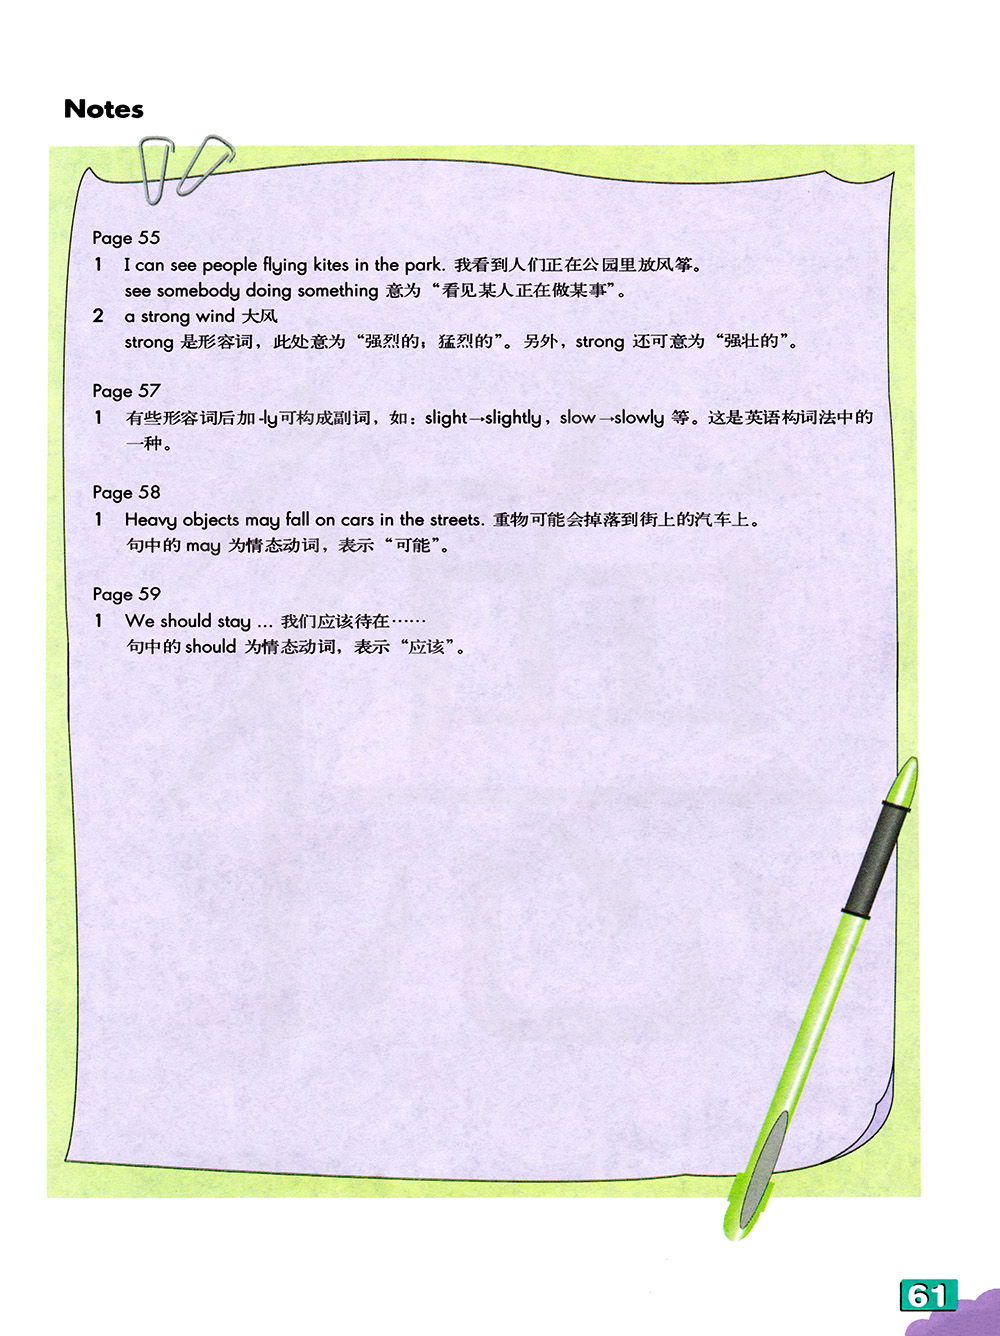 Notes
Page 55
1 I can see people flying kites in the park. 我看到人们正在公园里放风筝。
see somebody doing something 意为“看见某人正在做某事”。
2 a strong wind 大风
strong 是形容词，此处意为“强烈的；猛烈的”。另外，strong 还可意为“强壮的”。
Page 57
1 有些形容词后加-ly可构成副词，如：slight→slightly，slow→slowly 等。这是英语构词法中的
一种。
Page 58
1 Heavy objects may fall on cars in the streets. 重物可能会掉落到街上的汽车上。
句中的 may 为情态动词，表示“可能”。
Page 59
1 We should stay ... 我们应该待在……
句中的 should 为情态动词，表示“应该”。
61